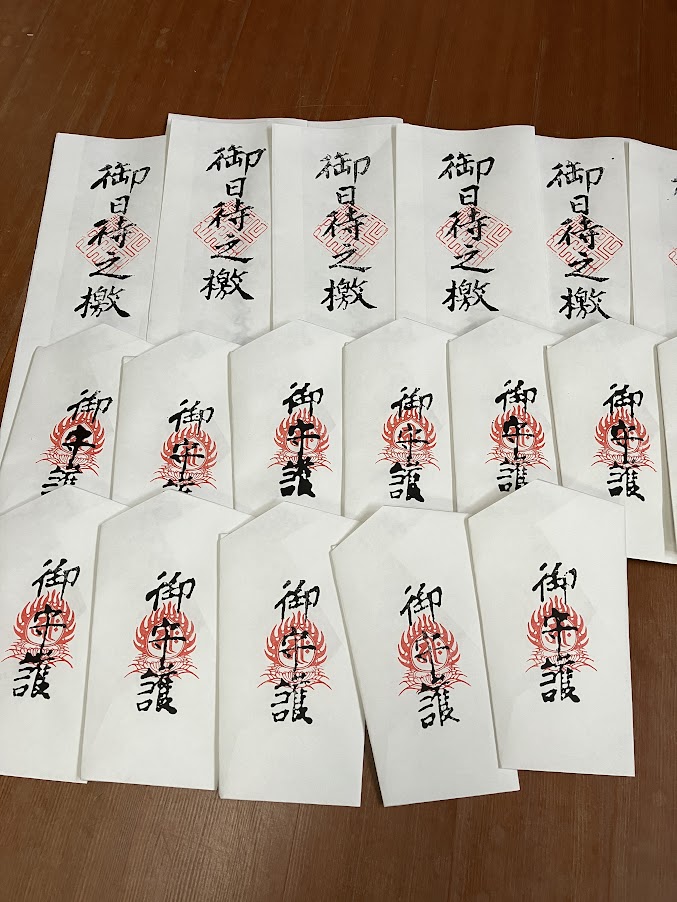 御日待之檄
御日待之檄
御日待之檄
御日待之檄
御日待之檄
御守護
御守護
御守護
御守護
御守護
御守護
御守護
御守護
御守護
御守護
御守護